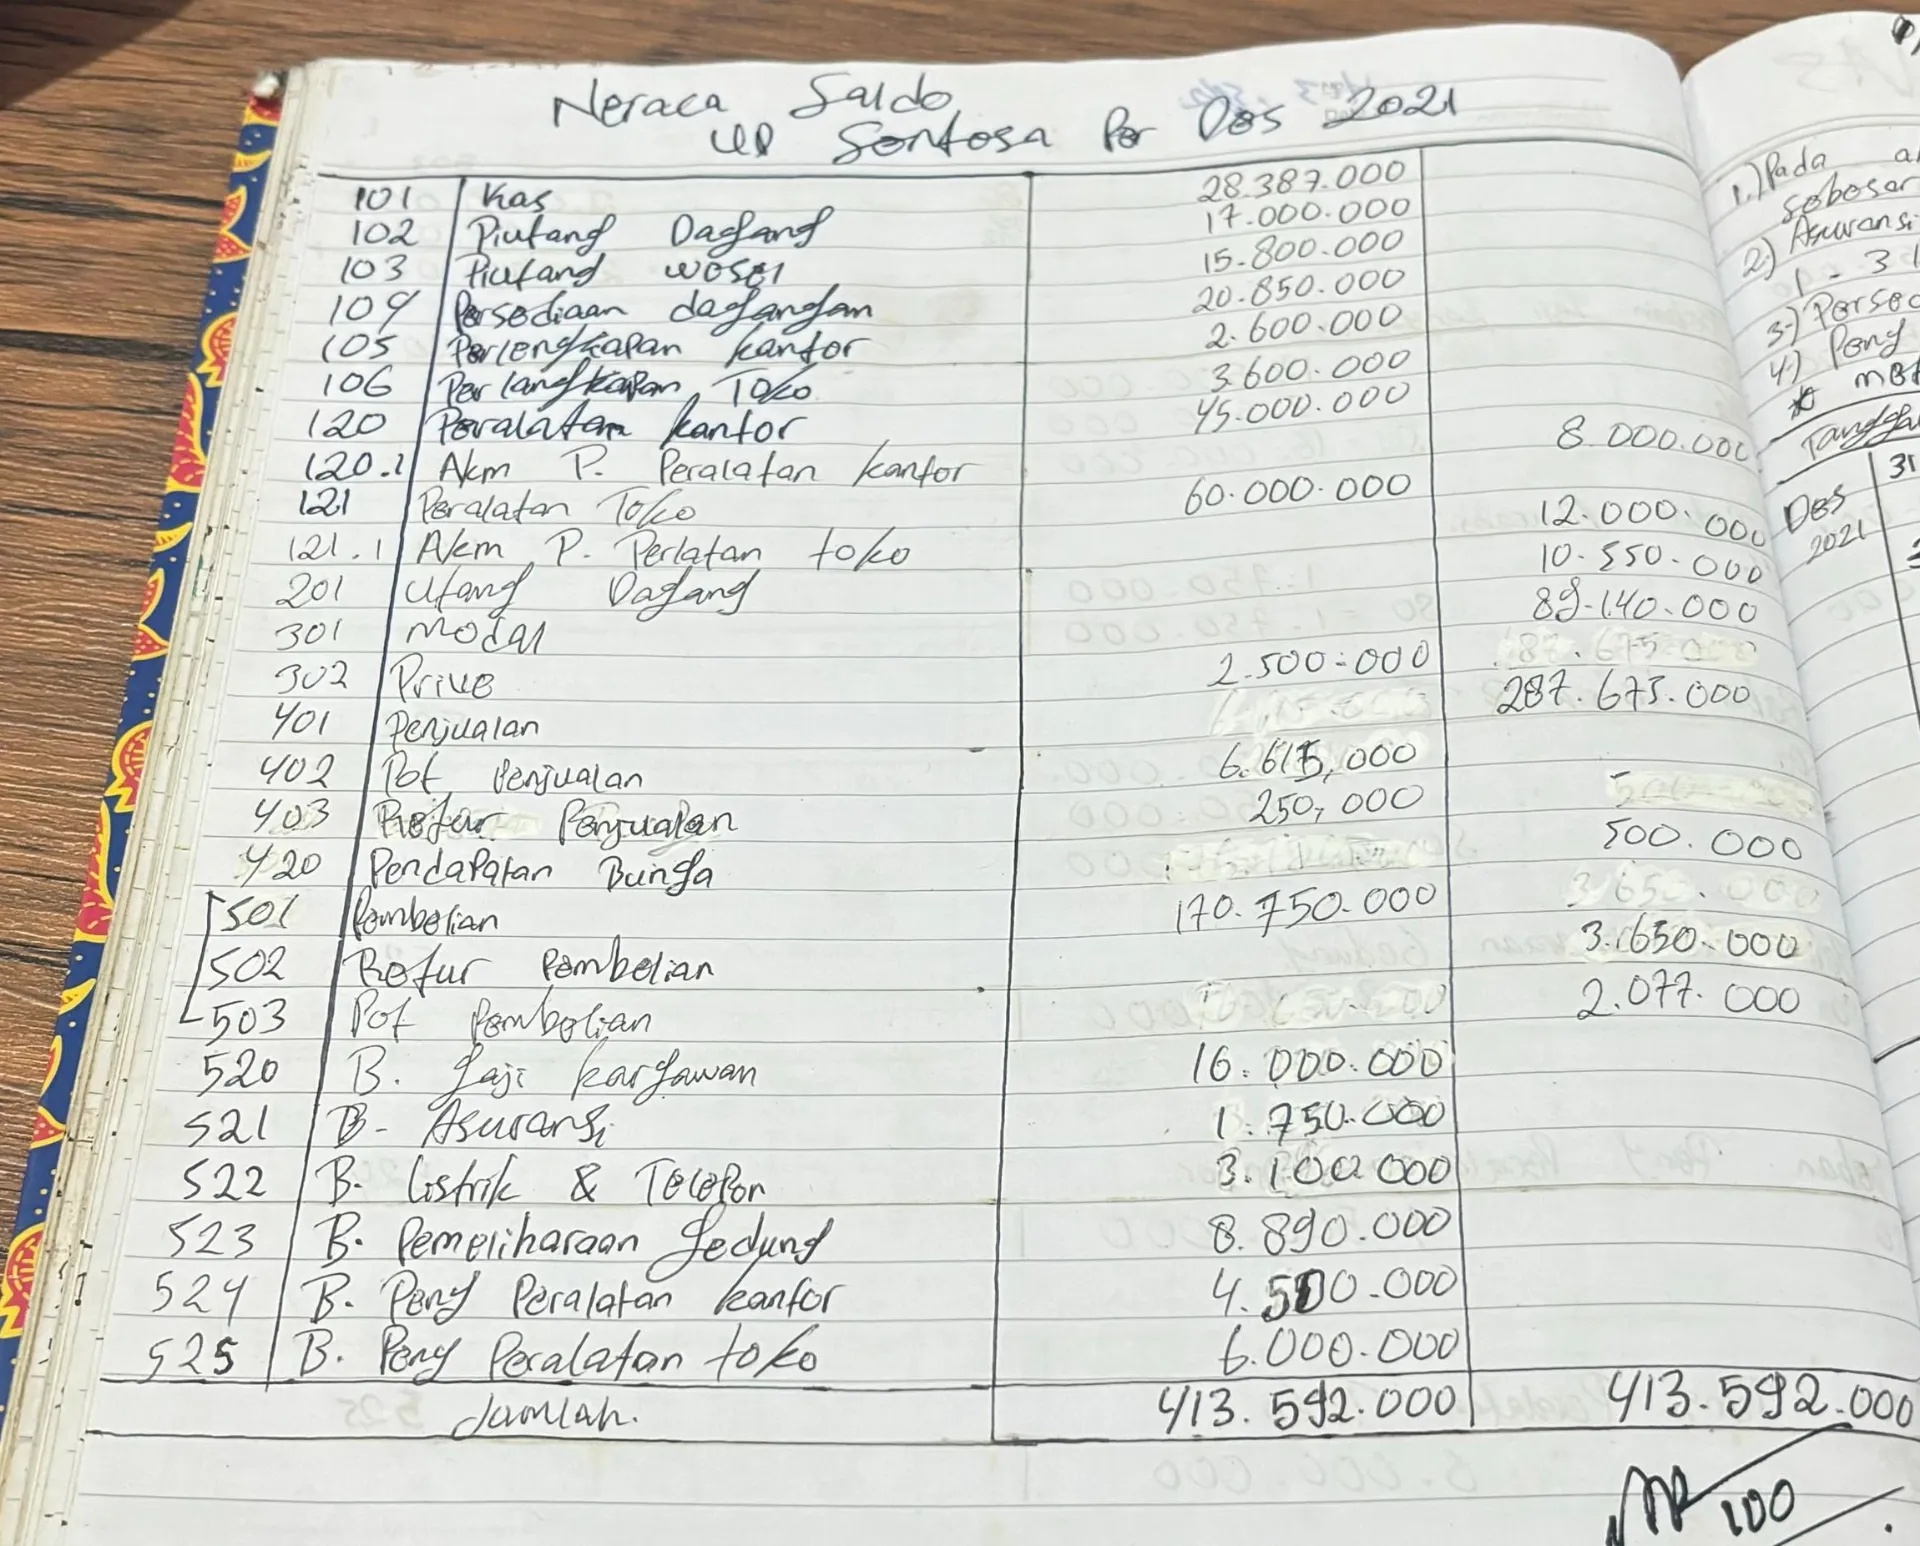 Neraca Saldo
UD Sentosa Per Des 2021
101 Kas 28.387.000
102 Piutang Dagang 17.000.000
103 Piutang wesel 15.800.000
104 Persediaan dagangan 20.850.000
105 Perlengkapan kantor 2.600.000
106 Perlangkapan Toko 3.600.000
120 Peralatan kantor 45.000.000
120.1 Akm P. Peralatan kantor 8.000.000
121 Peralatan Toko 60.000.000
121.1 Akm P. Perlatan toko 12.000.000
201 Utang Dagang 10.550.000
301 Modal 89.140.000
302 Prive 2.500.000
401 Penjualan 287.675.000
402 Pot Penjualan 6.615,000
403 Retur Penjualan 250,000
420 Pendapatan Bunga 500.000
501 Pembelian 170.750.000
502 Retur Pembelian 3.650.000
503 Pot Pembelian 2.077.000
520 B. Gaji karyawan 16.000.000
521 B. Asuransi 1.750.000
522 B. Listrik & Telepon 3.100.000
523 B. Pemeliharaan gedung 8.890.000
524 B. Peny Peralatan kantor 4.500.000
525 B. Peny Peralatan toko 6.000.000
Jumlah. 413.592.000 413.592.000
100
1.) Pada
sebesar
2) Asuransi
1 - 31
3)
4) Peny
Des 31
2021